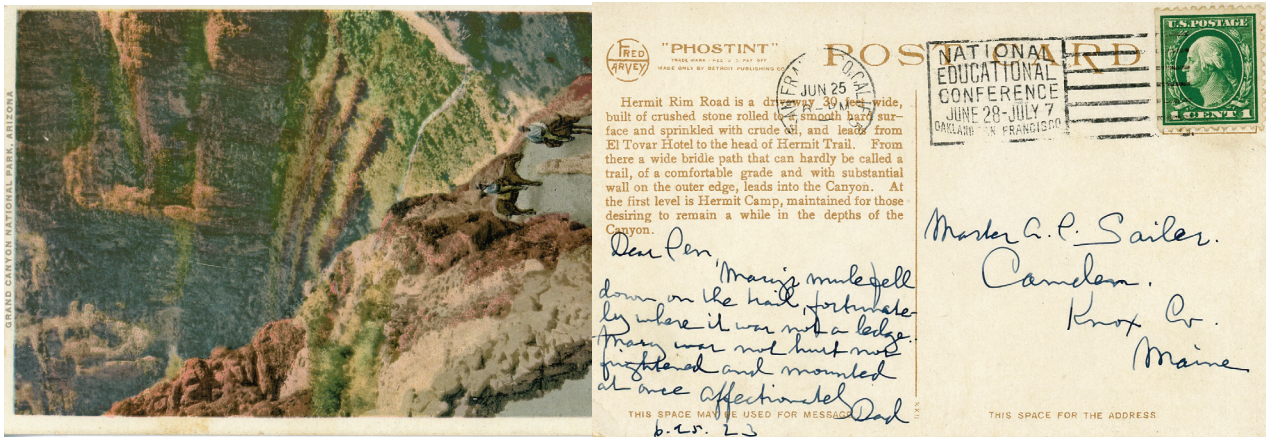 GRAND CANYON NATIONAL PARK, ARIZONA
FRED HARVEY
"PHOSTINT"
TRADE MARK - REG. U.S. PAT. OFF.
MADE ONLY BY DETROIT PUBLISHING CO.
POST CARD
SAN FRANCISCO, CALIF.
JUN 25
PM
NATIONAL
EDUCATIONAL
CONFERENCE
JUNE 28-JULY 7
OAKLAND SAN FRANCISCO
U.S. POSTAGE
1 CENT 1
Hermit Rim Road is a driveway 30 feet wide,
built of crushed stone rolled to a smooth hard sur-
face and sprinkled with crude oil, and leads from
El Tovar Hotel to the head of Hermit Trail. From
there a wide bridle path that can hardly be called a
trail, of a comfortable grade and with substantial
wall on the outer edge, leads into the Canyon. At
the first level is Hermit Camp, maintained for those
desiring to remain a while in the depths of the
Canyon.
Dear Pen,
Mary's mule fell
down on the trail, fortunate-
ly where it was not a ledge.
Mary was not hurt nor
frightened and mounted
at once affectionately
Dad
6.25.23
THIS SPACE MAY BE USED FOR MESSAGE
Master A. P. Sailer.
Camden.
Knox Co.
Maine
THIS SPACE FOR THE ADDRESS